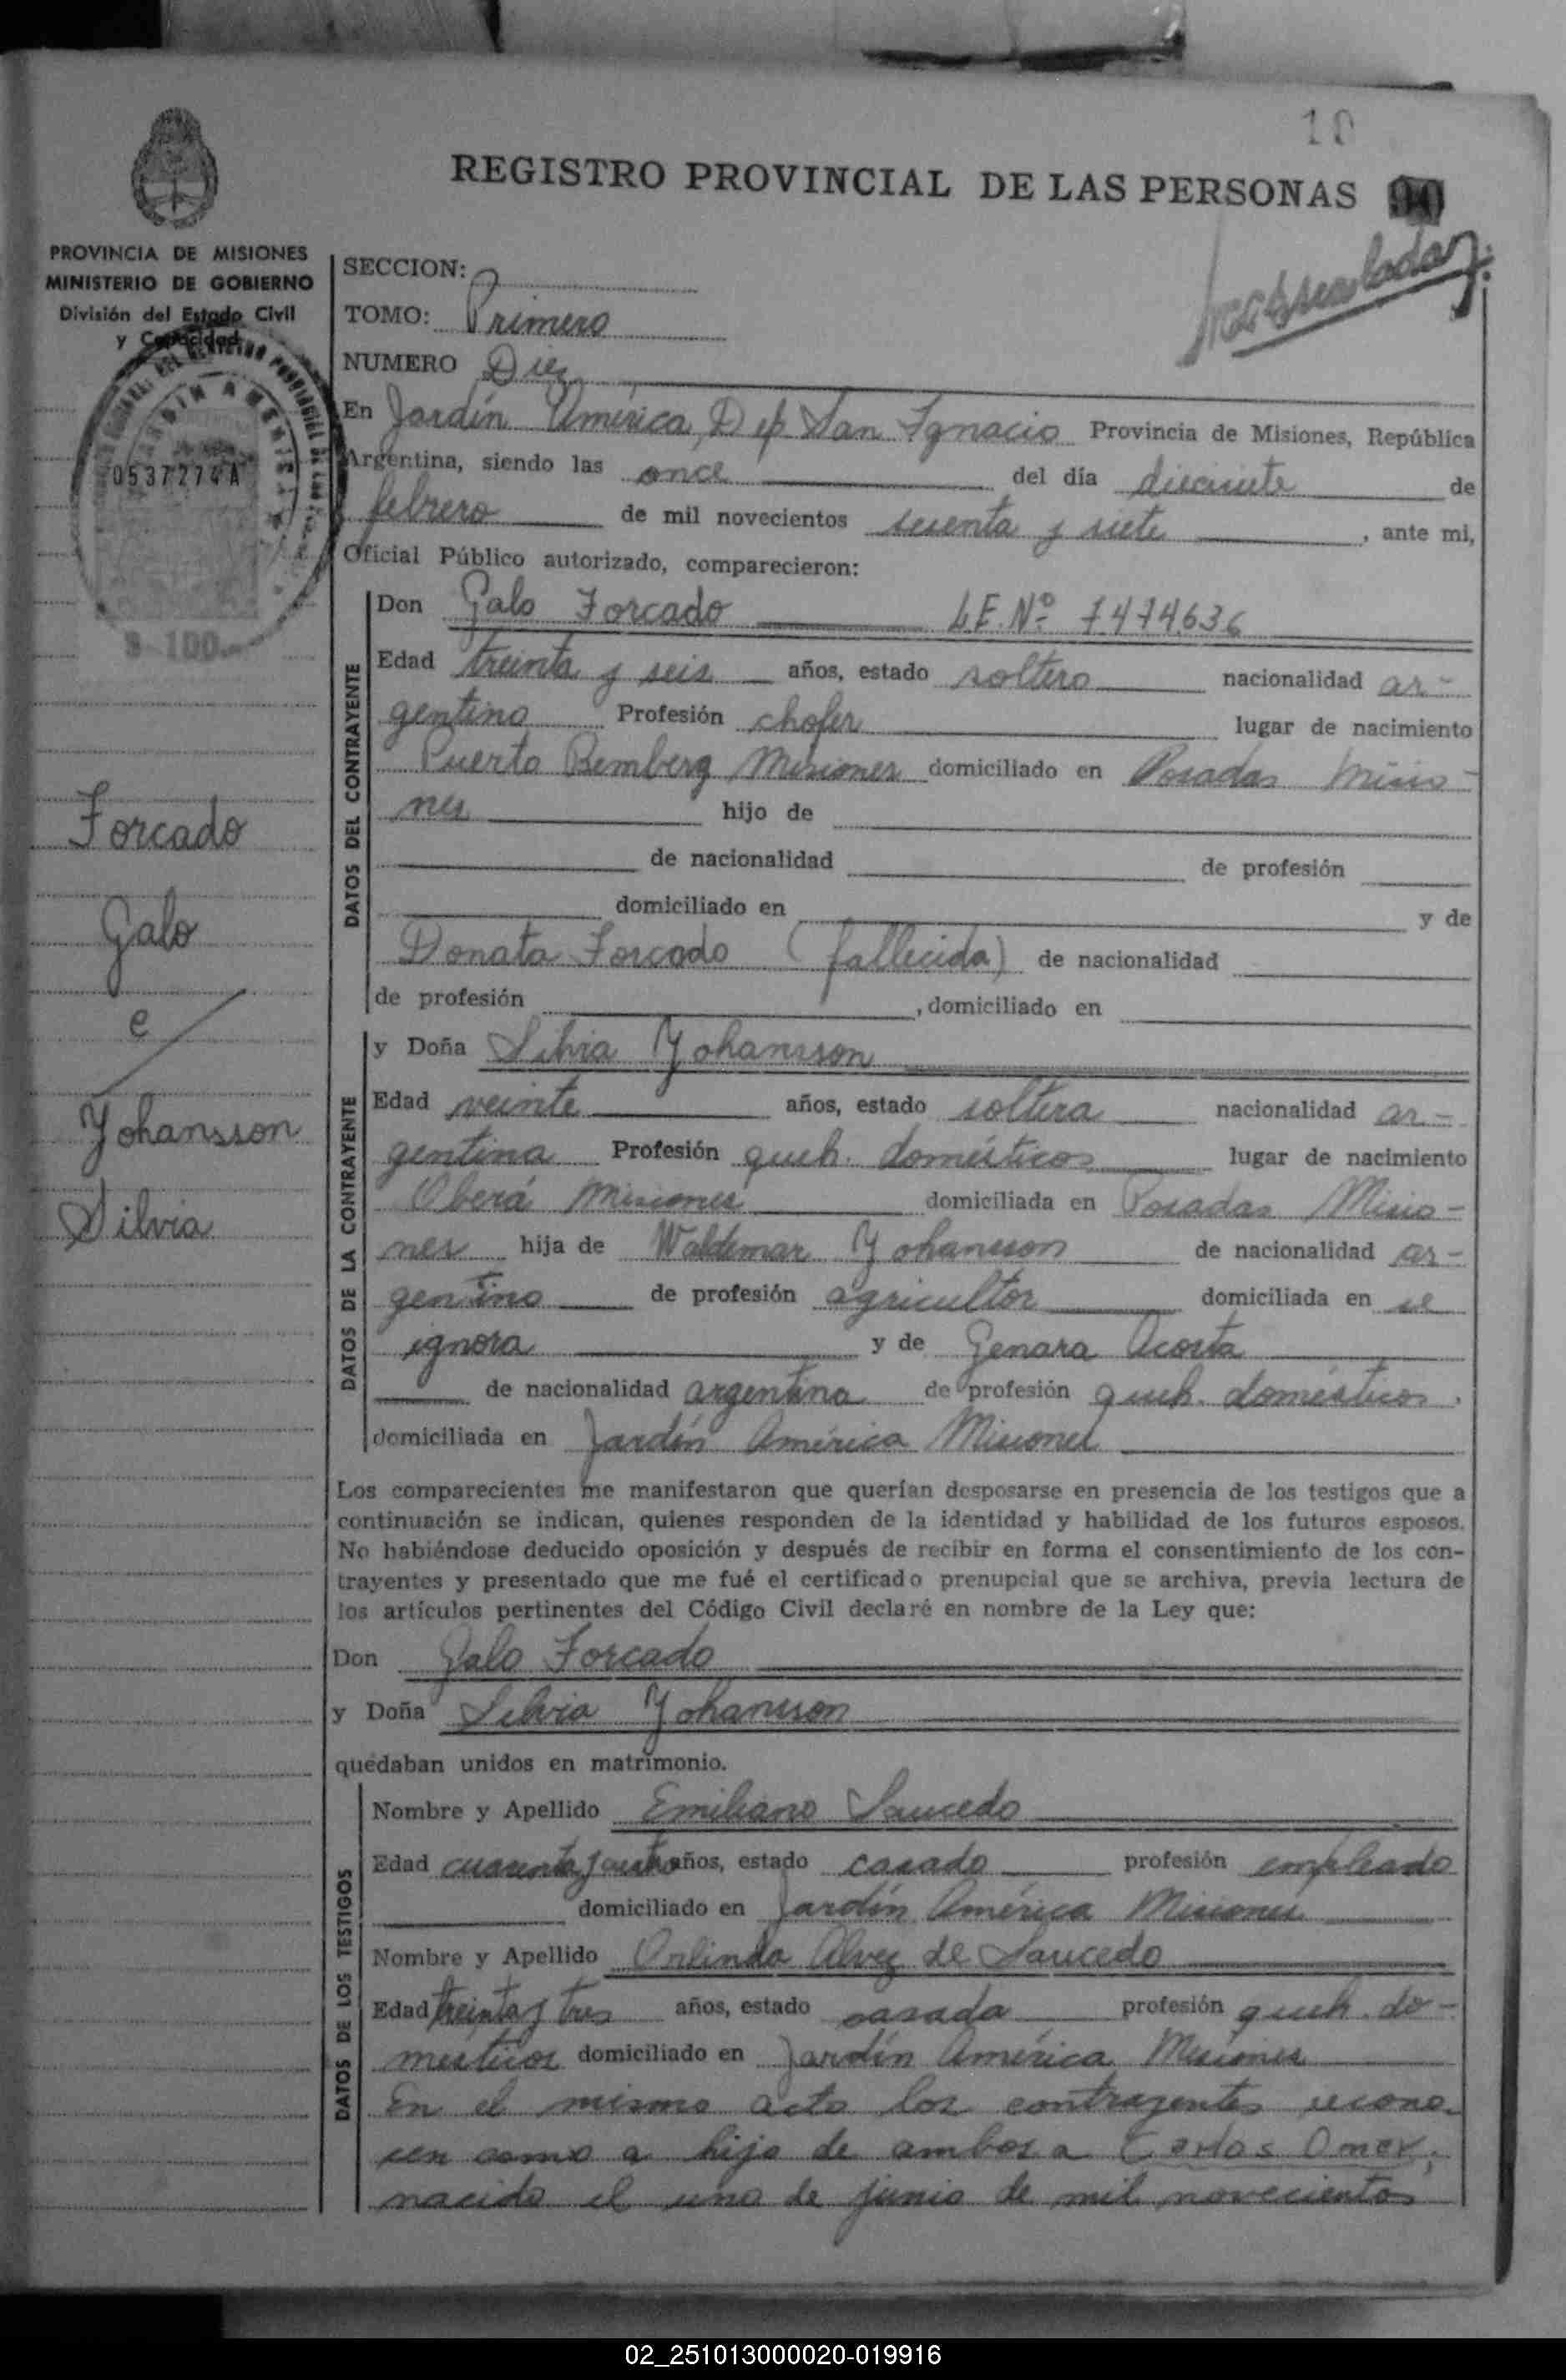 10
REGISTRO PROVINCIAL DE LAS PERSONAS
PROVINCIA DE MISIONES
MINISTERIO DE GOBIERNO
División del Estado Civil
y Capacidad
0537274A
$ 100.-
Forcado
Galo
c/
Yohansson
Silvia
SECCION:
TOMO: Primero
NUMERO Diez
En Jardín América, Dep. San Ignacio Provincia de Misiones, República
Argentina, siendo las once del día diecisiete de
febrero de mil novecientos sesenta y siete, ante mi,
Oficial Público autorizado, comparecieron:
DATOS DEL CONTRAYENTE
Don Galo Forcado L.E. Nº 7474636
Edad treinta y seis años, estado soltero nacionalidad ar-
gentino Profesión chofer lugar de nacimiento
Puerto Bemberg Misiones domiciliado en Posadas Misio-
nes hijo de
de nacionalidad de profesión
domiciliado en y de
Donata Forcado (fallecida) de nacionalidad
de profesión , domiciliado en
DATOS DE LA CONTRAYENTE
y Doña Silvia Yohansson
Edad veinte años, estado soltera nacionalidad ar-
gentina Profesión queh. domésticos lugar de nacimiento
Oberá Misiones domiciliada en Posadas Misio-
nes hija de Waldemar Yohansson de nacionalidad ar-
gentino de profesión agricultor domiciliada en se
ignora y de Genara Acosta
de nacionalidad argentina de profesión queh. domésticos.
domiciliada en Jardín América Misiones
Los comparecientes me manifestaron que querían desposarse en presencia de los testigos que a
continuación se indican, quienes responden de la identidad y habilidad de los futuros esposos.
No habiéndose deducido oposición y después de recibir en forma el consentimiento de los con-
trayentes y presentado que me fué el certificado prenupcial que se archiva, previa lectura de
los artículos pertinentes del Código Civil declaré en nombre de la Ley que:
Don Galo Forcado
y Doña Silvia Yohansson
quedaban unidos en matrimonio.
DATOS DE LOS TESTIGOS
Nombre y Apellido Emiliano Saucedo
Edad cuarenta y años, estado casado profesión empleado
domiciliado en Jardín América Misiones
Nombre y Apellido Orlinda Alvez de Saucedo
Edad treinta y tres años, estado casada profesión queh. do-
mesticos domiciliado en Jardín América Misiones
En el mismo acto los contrayentes recono-
cen como a hijo de ambos a Carlos Omar,
nacido el uno de junio de mil novecientos
02_251013000020-019916